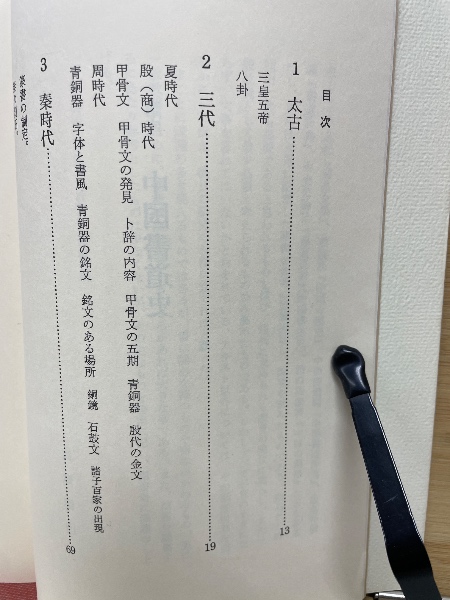 目次
1 太古……13
三皇五帝
八卦
2 三代……19
夏時代
殷（商）時代
甲骨文 甲骨文の発見 卜辞の内容 甲骨文の五期 青銅器 殷代の金文
周時代
青銅器 字体と書風 青銅器の銘文 銘文のある場所 銅鏡 石鼓文 諸子百家の出現
3 秦時代……69
中国書道史